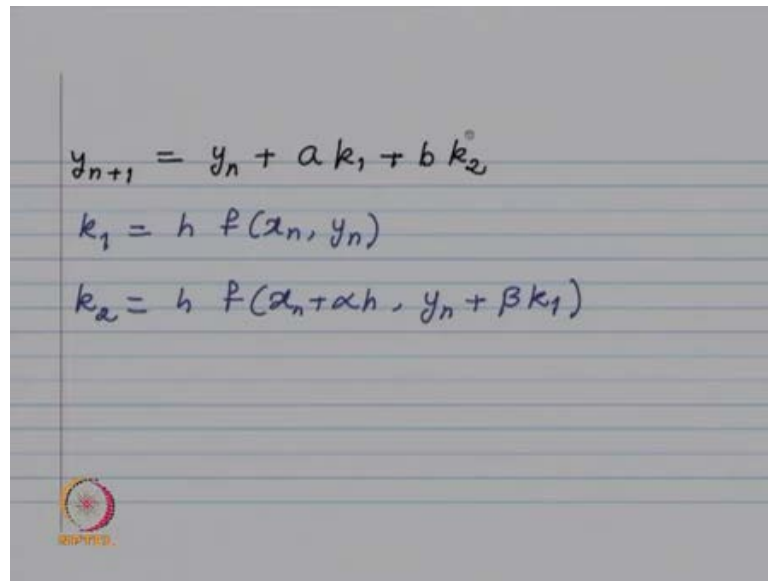 yₙ₊₁ = yₙ + a k₁ + b k₂
k₁ = h f(xₙ, yₙ)
k₂ = h f(xₙ + αh, yₙ + βk₁)